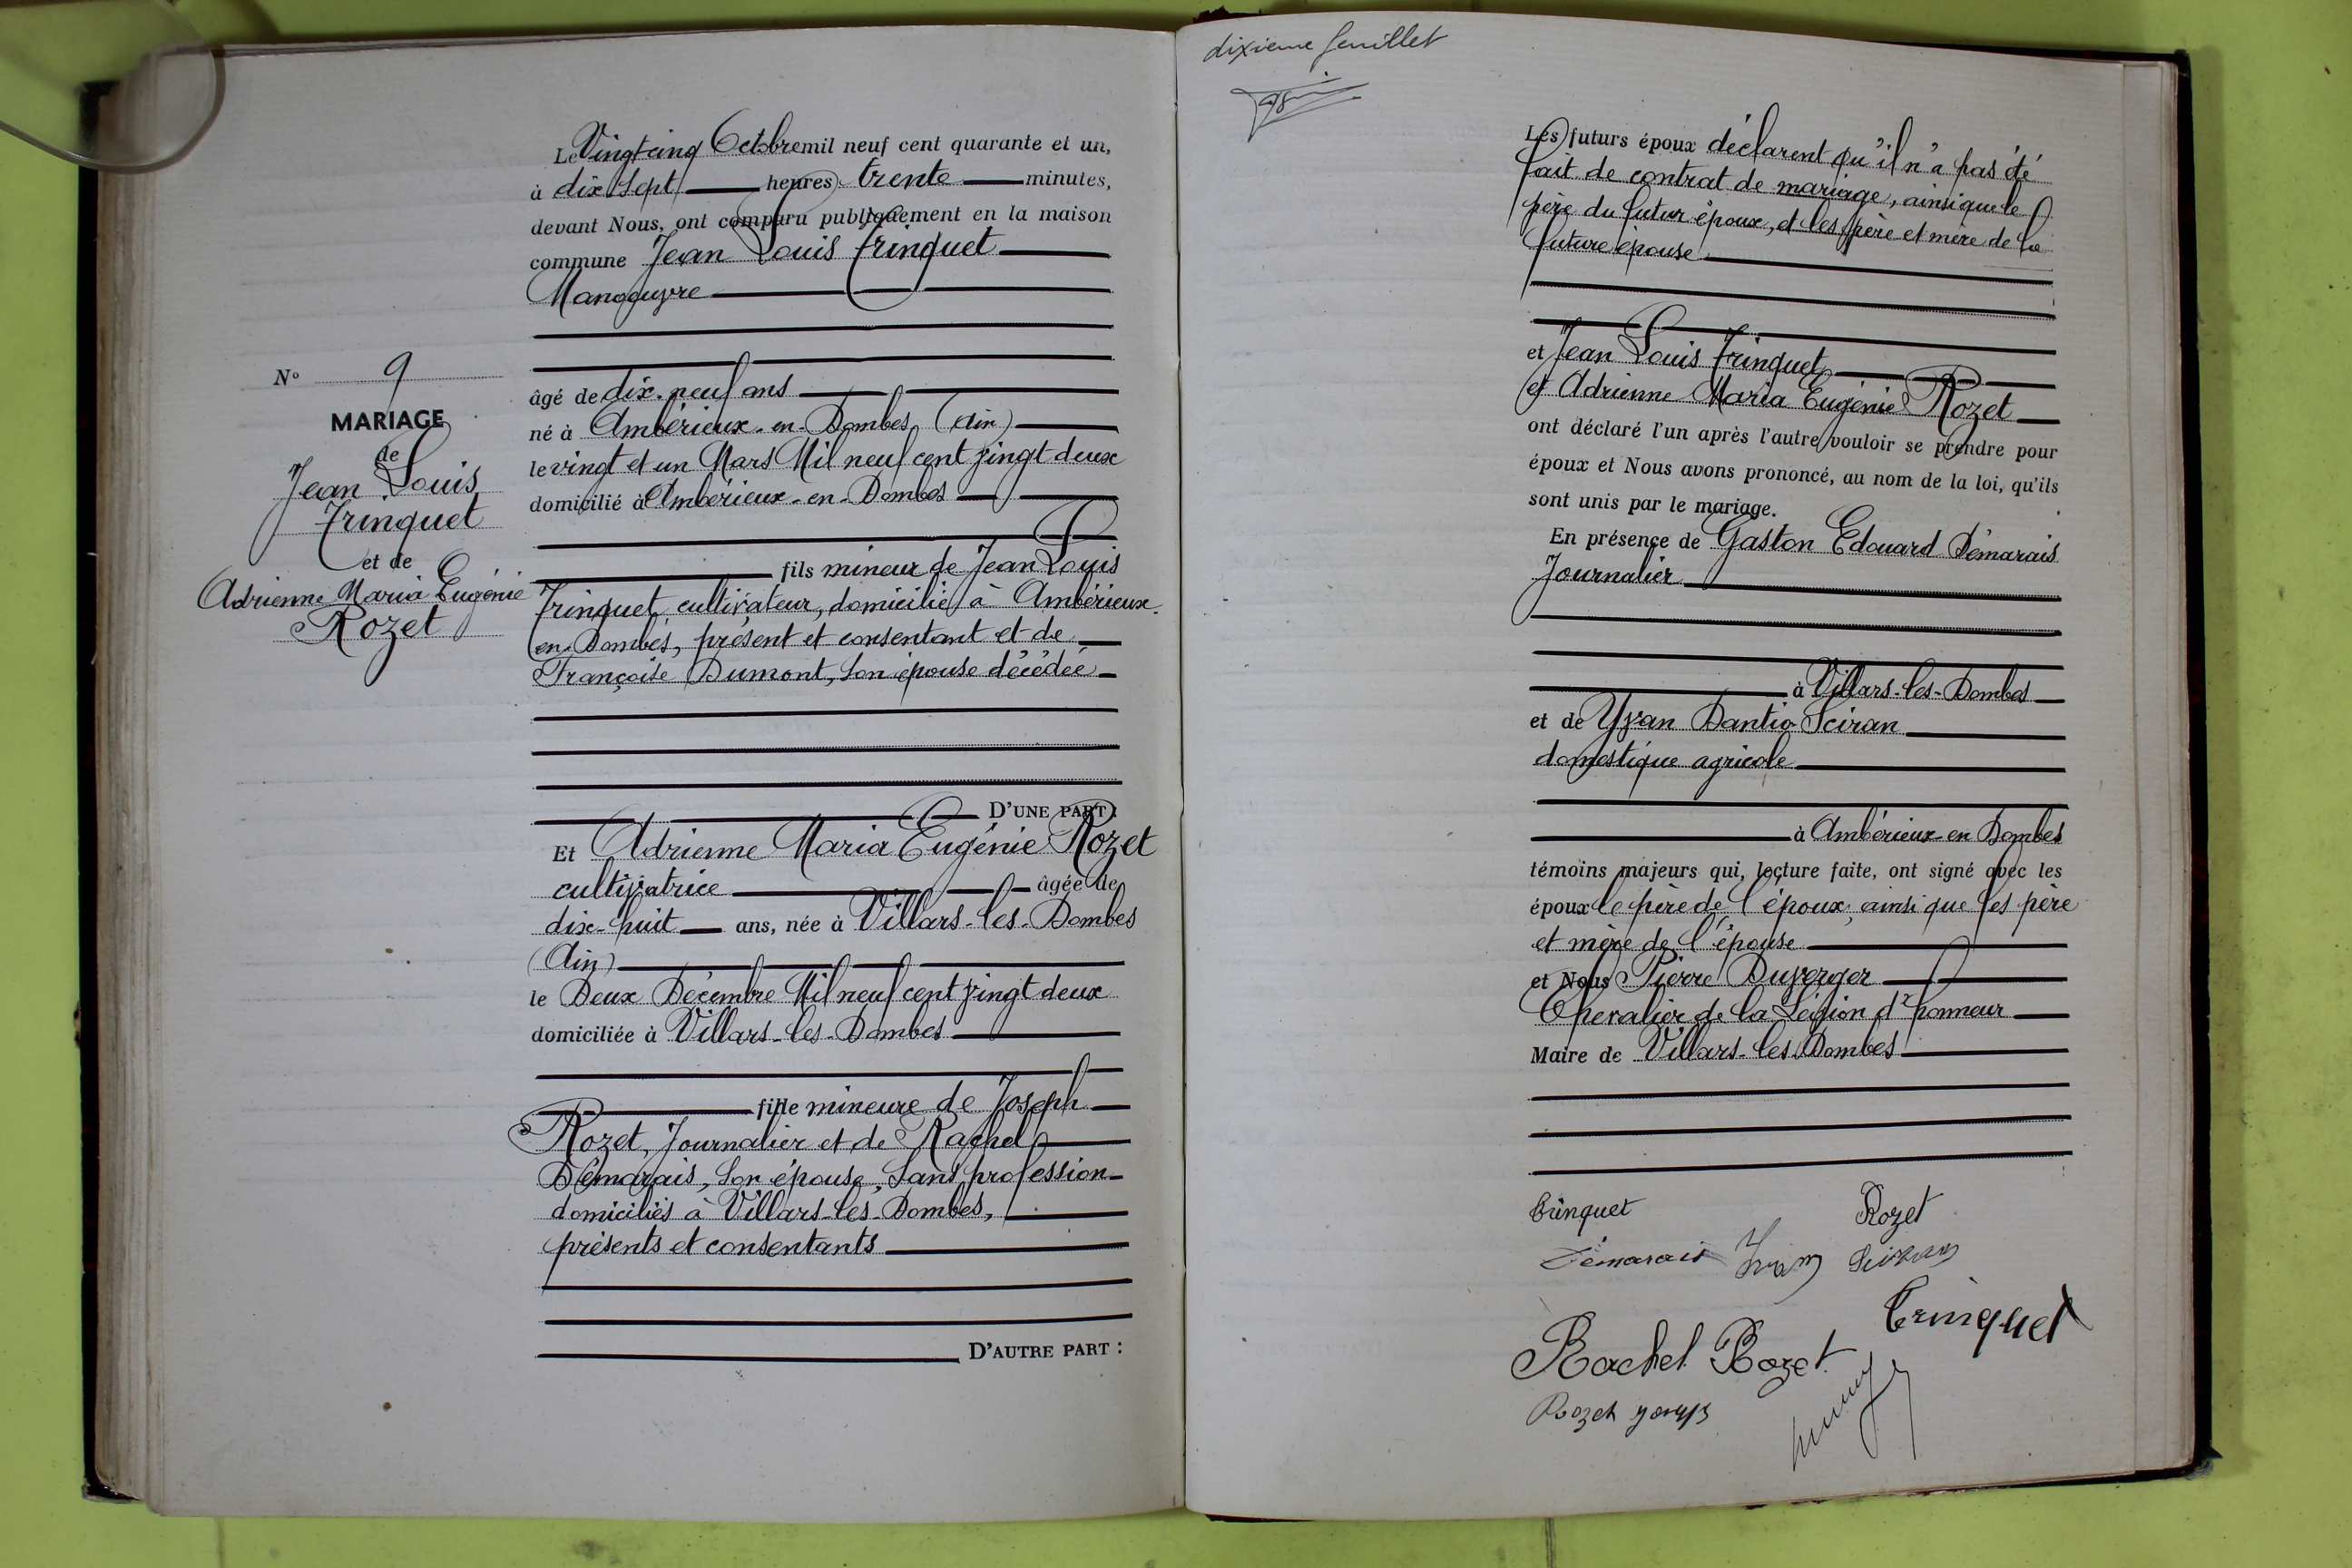 N° 9
MARIAGE
de
Jean Louis
Trinquet
et de
Adrienne Maria Eugénie
Rozet
Le Vingt cinq Octobre mil neuf cent quarante et un,
à dix sept heures trente minutes,
devant Nous, ont comparu publiquement en la maison
commune Jean Louis Trinquet
Manoeuvre
âgé de dix-neuf ans
né à Ambérieux-en-Dombes (Ain)
le vingt et un Mars Mil neuf cent vingt deux
domicilié à Ambérieux-en-Dombes
fils mineur de Jean Louis
Trinquet, cultivateur, domicilié à Ambérieux-
en-Dombes, présent et consentant et de
Françoise Dumont, son épouse décédée
D'UNE PART :
Et Adrienne Maria Eugénie Rozet
cultivatrice âgée de
dix-huit ans, née à Villars-les-Dombes
(Ain)
le Deux Décembre Mil neuf cent vingt deux
domiciliée à Villars-les-Dombes
fille mineure de Joseph
Rozet, Journalier et de Rachel
Démarais, son épouse, sans profession
domiciliés à Villars-les-Dombes,
présents et consentants
D'AUTRE PART :
dixième feuillet
Les futurs époux déclarent qu'il n'a pas été
fait de contrat de mariage, ainsi que le
père du futur époux, et les père et mère de la
future épouse
et Jean Louis Trinquet
et Adrienne Maria Eugénie Rozet
ont déclaré l'un après l'autre vouloir se prendre pour
époux et Nous avons prononcé, au nom de la loi, qu'ils
sont unis par le mariage.
En présence de Gaston Edouard Démarais
Journalier
à Villars-les-Dombes
et de Yvan Dantio Sciran
domestique agricole
à Ambérieux-en Dombes
témoins majeurs qui, lecture faite, ont signé avec les
époux le père de l'époux, ainsi que les père
et mère de l'épouse
et Nous Pierre Duverger
Chevalier de la Légion d'honneur
Maire de Villars-les-Dombes
Trinquet Rozet
Démarais Ivan
Trinquet
Rachel Rozet
Rozet